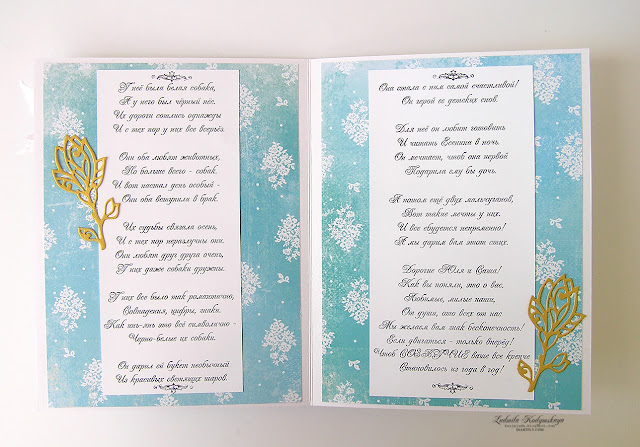 У неё была белая собака,
А у него был чёрный пёс.
Их дороги сошлись однажды
И с тех пор у них все всерьёз.
Они оба любят животных,
Но больше всего - собак.
И вот настал день особый -
Они оба вступили в брак.
Их судьбы связала осень,
И с тех пор неразлучны они.
Они любят друг друга очень,
У них даже собаки дружны.
У них все было так романтично,
Совпадения, цифры, знаки.
Как инь-янь это всё символично -
Черно-белые их собаки.
Он дарил ей букет необычный
Из красивых светящих шаров.
Она стала с ним самой счастливой!
Он герой ее детских снов.
Для неё он любит готовить
И читать Есенина в ночь.
Он мечтает, чтоб она первой
Подарила ему бы дочь.
А потом ещё двух мальчуганов,
Вот такие мечты у них.
И все сбудется непременно!
А мы дарим вам этот стих.
Дорогие Юля и Саша!
Как вы поняли, это о вас.
Любимые, милые наши,
От души, это всех от нас
Мы желаем вам знак бесконечность!
Если двигаться - только вперёд!
Чтоб СОЗВУЧИЕ ваше все крепче
Становилось из года в год!
Ludmila Kodymskaya